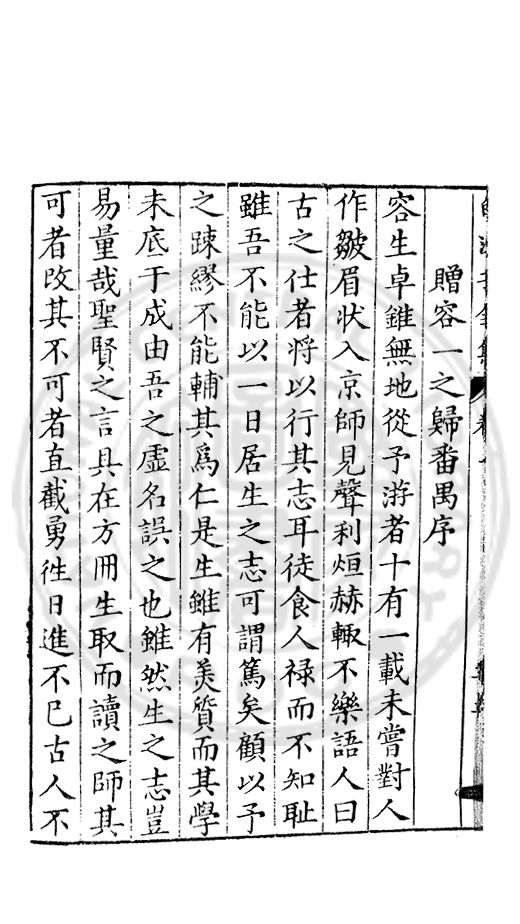 贈容一之歸番禺序
容生卓錐無地從予游者十有一載未嘗對人
作皺眉狀入京師見聲利烜赫輙不樂語人曰
古之仕者將以行其志耳徒食人禄而不知耻
雖吾不能以一日居生之志可謂篤矣顧以予
之踈繆不能輔其爲仁是生雖有美質而其學
未底于成由吾之虚名誤之也雖然生之志豈
易量哉聖賢之言具在方冊生取而讀之師其
可者改其不可者直截勇徃日進不已古人不